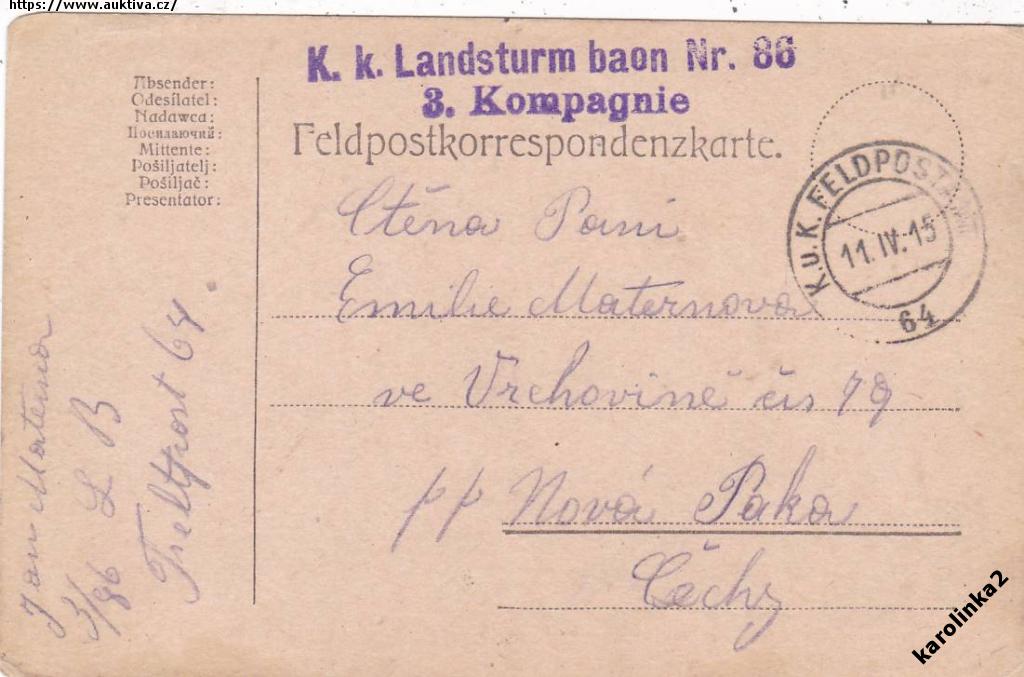 https://www.auktiva.cz/
K. k. Landsturm baon Nr. 86
3. Kompagnie
Feldpostkorrespondenzkarte.
Absender:
Odesílatel:
Nadawca:
Посилаючий:
Mittente:
Pošiljatelj:
Pošiljač:
Presentator:
K.u.K. FELDPOSTAMT
11.IV.15
64
Ctěna Pani
Emilie Maternova
ve Vrchovině čis 79
pp Nová Paka
Čechy
Jan Materna
3/86 L B
Feltpost 64.
karolinka2